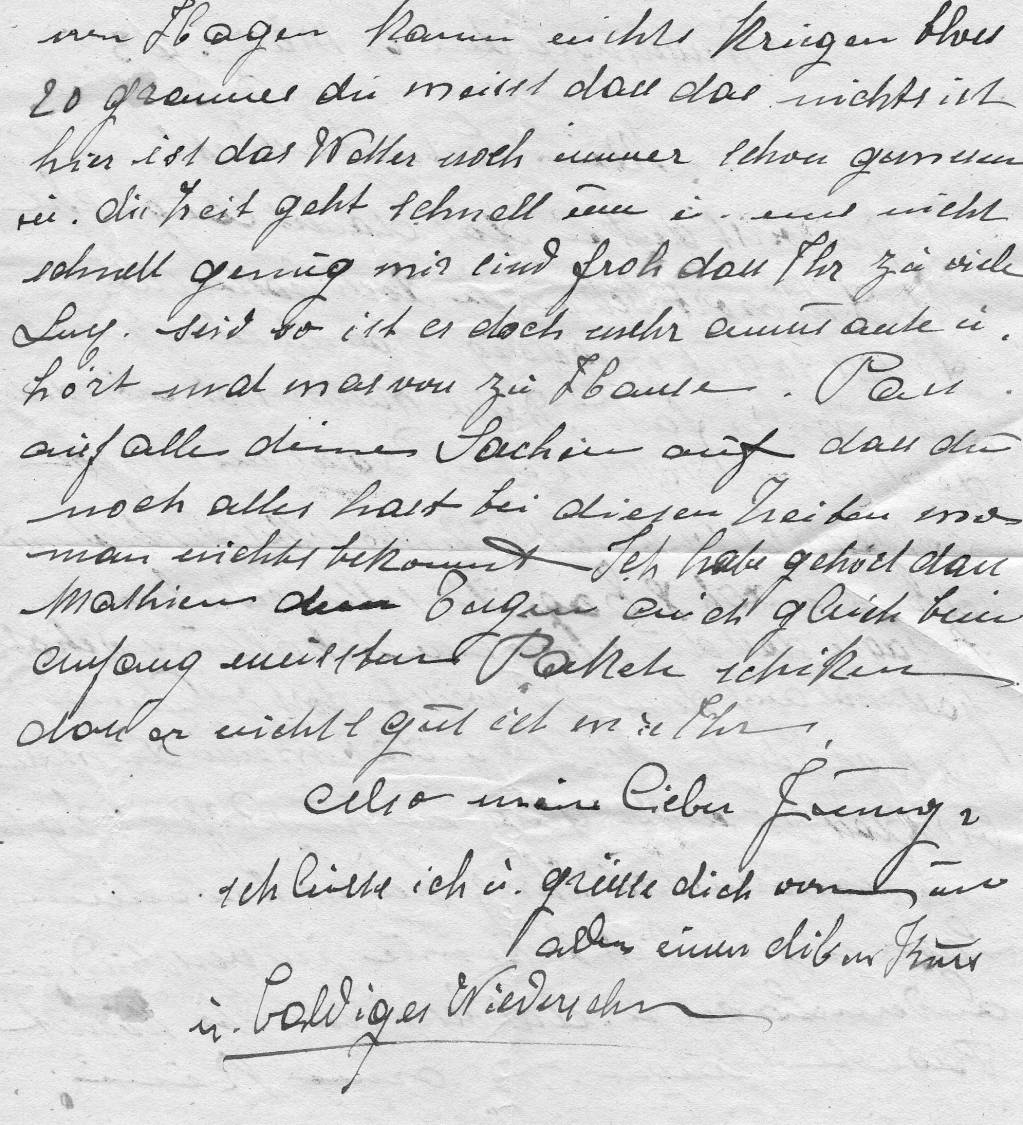 von Hagen kann nichts kriegen blos
20 grammes du weisst dass das nichts ist
hier ist das Wetter noch immer schön gewesen
u. die Zeit geht schnell um u. uns nicht
schnell genug wir sind froh dass Ihr zu viele
Lux. seid so ist es doch mehr amüsante u.
hört mal was von zu Hause. Pass
auf alle deine Sachen auf dass du
noch alles hast bei diesen Zeiten wo
man nichts bekommt Ich habe gehört dass
Mathien dem Eugen auch gleich beim
anfang mussten Pakete schiken
dass er nicht gut ist wie Ihr,
Also meine lieber Jung
schliesse ich u. grüsse dich von uns
allen einen diken Kuss
u. baldiges Wiedersehn